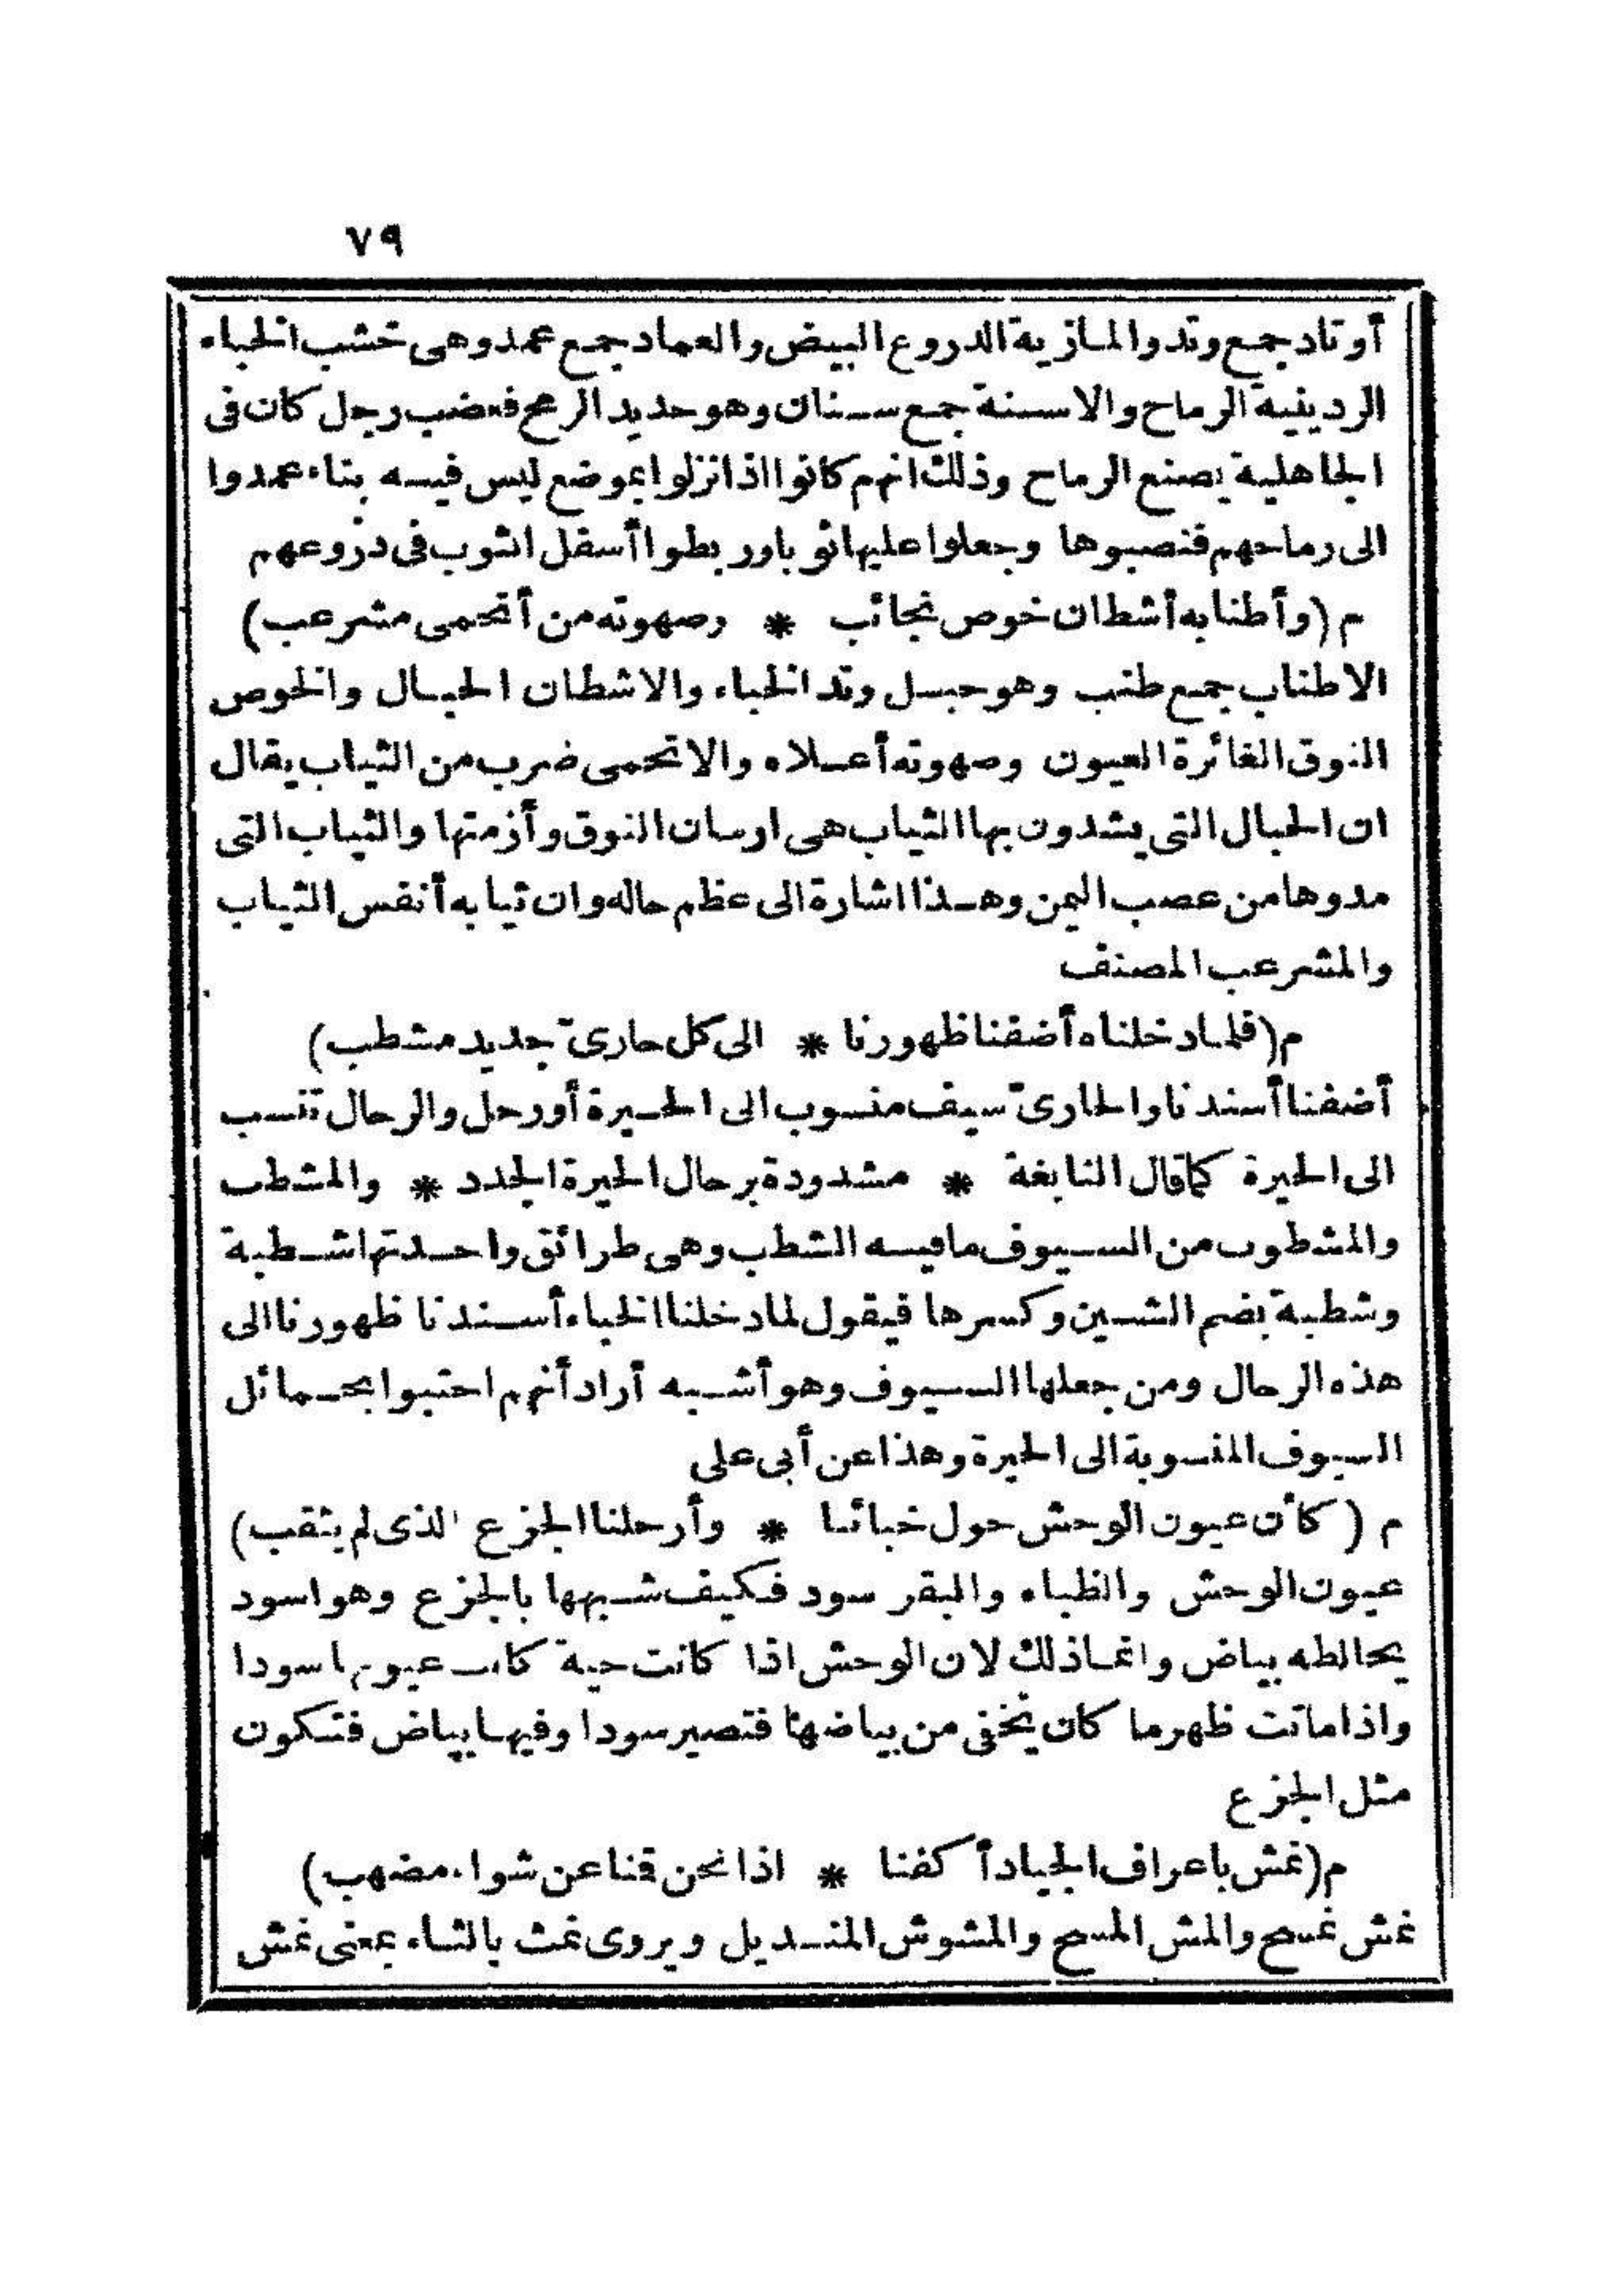 ٧٩
أوتاد جمع وتد والماذية الدروع البيض والعماد جمع عمد وهى خشب الخباء
الردينية الرماح والاسنة جمع سنان وهو حديد الرمح قعضب رجل كان فى
الجاهلية يصنع الرماح وذلك انهم كانوا اذا نزلوا بموضع ليس فيه بناء عمدوا
الى رماحهم فنصبوها وجعلوا عليها ثوبا وربطوا أسفل الثوب فى دروعهم
م (وأطنابه أشطان خوص نجائب * وصهوته من أتحمى مشرعب)
الاطناب جمع طنب وهو حبل وتد الخباء والاشطان الحبال والخوص
النوق الغائرة العيون وصهوته أعلاه والاتحمى ضرب من الثياب يقال
ان الحبال التى يشدون بها الثياب هى ارسان النوق وأزمتها والثياب التى
مدوها من عصب اليمن وهذا اشارة الى عظم حاله وان ثيابه أنفس الثياب
والمشرعب المصنف
م (فلما دخلناه أضفنا ظهورنا * الى كل حارىّ جديد مشطب)
أضفنا أسندنا والحارىّ سيف منسوب الى الحيرة أو رحل والرحال تنسب
الى الحيرة كما قال النابغة * مشدودة برحال الحيرة الجدد * والمشطب
والمشطوب من السيوف ما فيه الشطب وهى طرائق واحدتها شطبة
وشطبة بضم الشين وكسرها فيقول لما دخلنا الخباء أسندنا ظهورنا الى
هذه الرحال ومن جعلها السيوف وهو أشبه أراد أنهم احتبوا بحمائل
السيوف المنسوبة الى الحيرة وهذا عن أبى على
م (كأن عيون الوحش حول خبائنا * وأرحلنا الجزع الذى لم يثقب)
عيون الوحش والظباء والبقر سود فكيف شبهها بالجزع وهو اسود
يخالطه بياض وانما ذلك لان الوحش اذا كانت حية كانت عيونها سودا
واذا ماتت ظهر ما كان يخفى من بياضها فتصير سودا وفيها بياض فتكون
مثل الجزع
م (نمش باعراف الجياد أكفنا * اذا نحن قمنا عن شواء مضهب)
نمش نمسح والمش المسح والمشوش المنديل ويروى نمث بالثاء بمعنى نمش